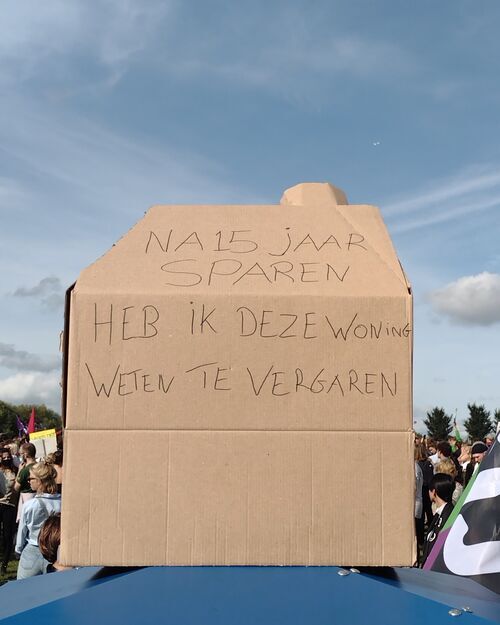 NA 15 JAAR
SPAREN
HEB IK DEZE WONING
WETEN TE VERGAREN